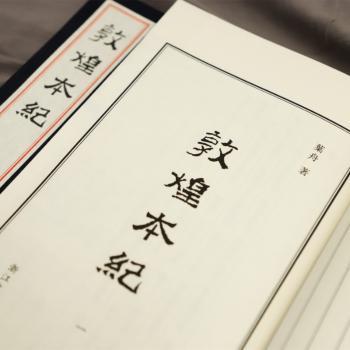 敦煌本紀
葉舟 著
敦煌本紀
一
浙江